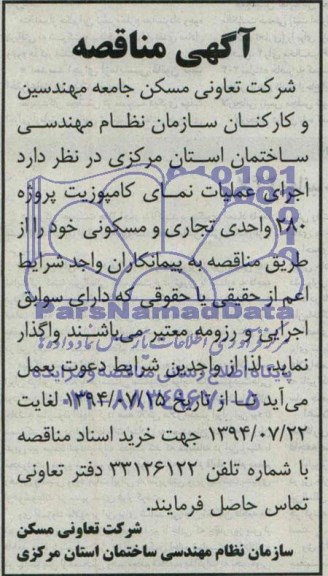 آگهی مناقصه
شرکت تعاونی مسکن جامعه مهندسین
و کارکنان سازمان نظام مهندسی
ساختمان استان مرکزی در نظر دارد
اجرای عملیات نمای کامپوزیت پروژه
۲۸۰ واحدی تجاری و مسکونی خود را از
طریق مناقصه به پیمانکاران واجد شرایط
اعم از حقیقی یا حقوقی که دارای سوابق
ParsNamadData
اجرایی و رزومه معتبر می‌باشند واگذار
نماید. لذا از واجدین شرایط دعوت بعمل
می‌آید تا از تاریخ ۱۳۹۴/۰۷/۱۵ لغایت
۱۳۹۴/۰۷/۲۲ جهت خرید اسناد مناقصه
با شماره تلفن ۳۳۱۲۶۱۲۲ دفتر تعاونی
تماس حاصل فرمایند.
شرکت تعاونی مسکن
سازمان نظام مهندسی ساختمان استان مرکزی